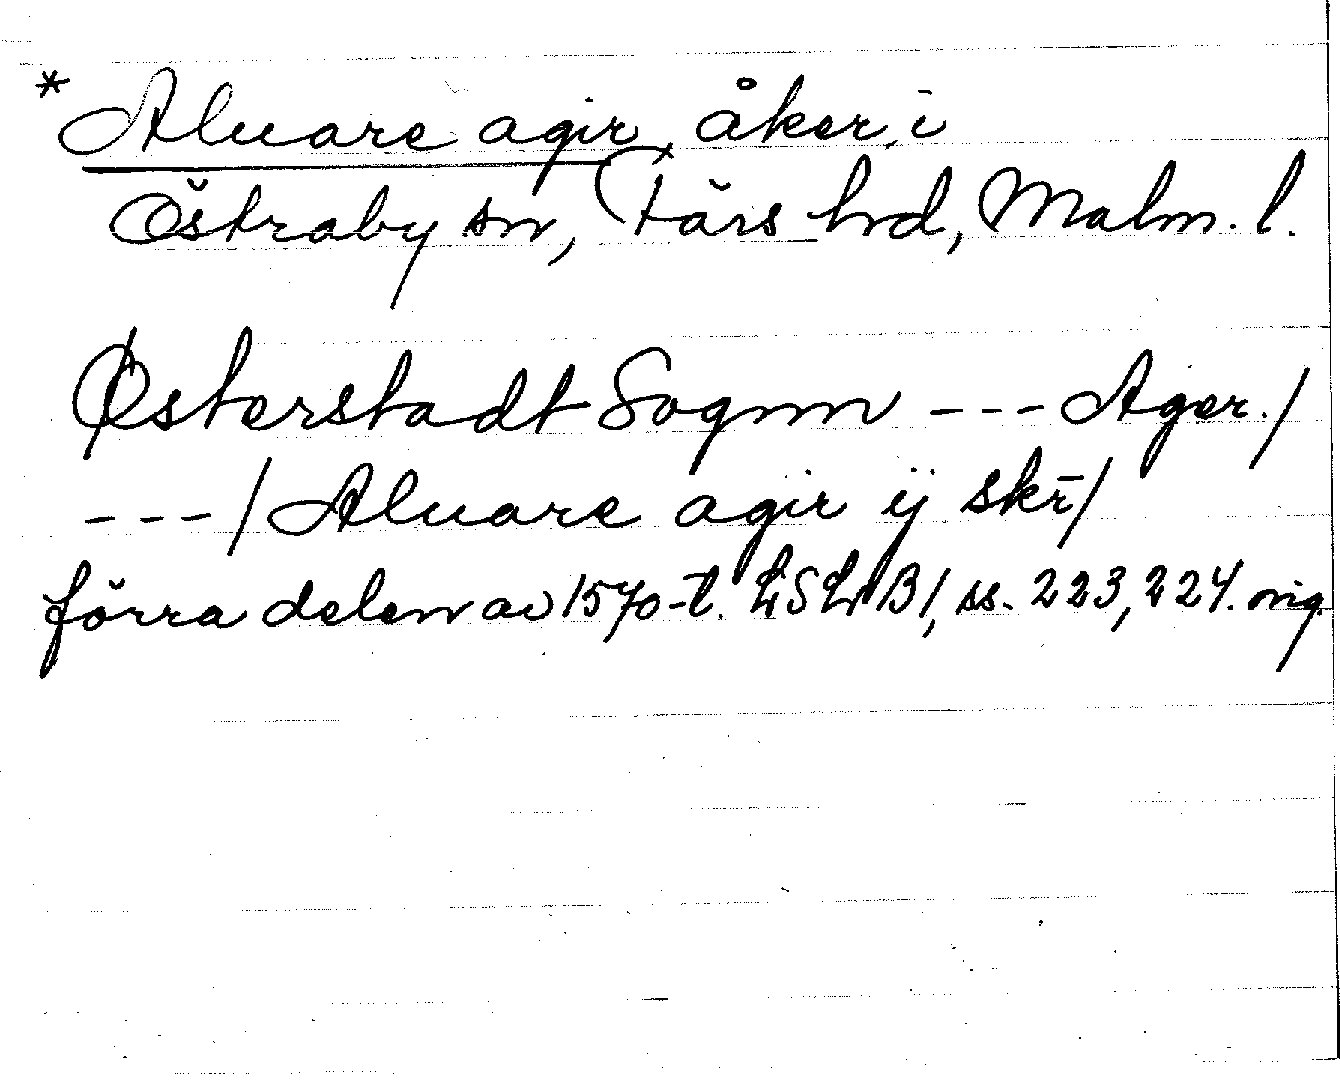 * Aluare agir, åker, i
Östraby sn, Färs hd, Malm. l.
Østerstadt Sognn --- Ager./
---/ Aluare agir ij skr̄/
förra delen av 1570-t. LSLrB1, ss. 223, 224. orig.